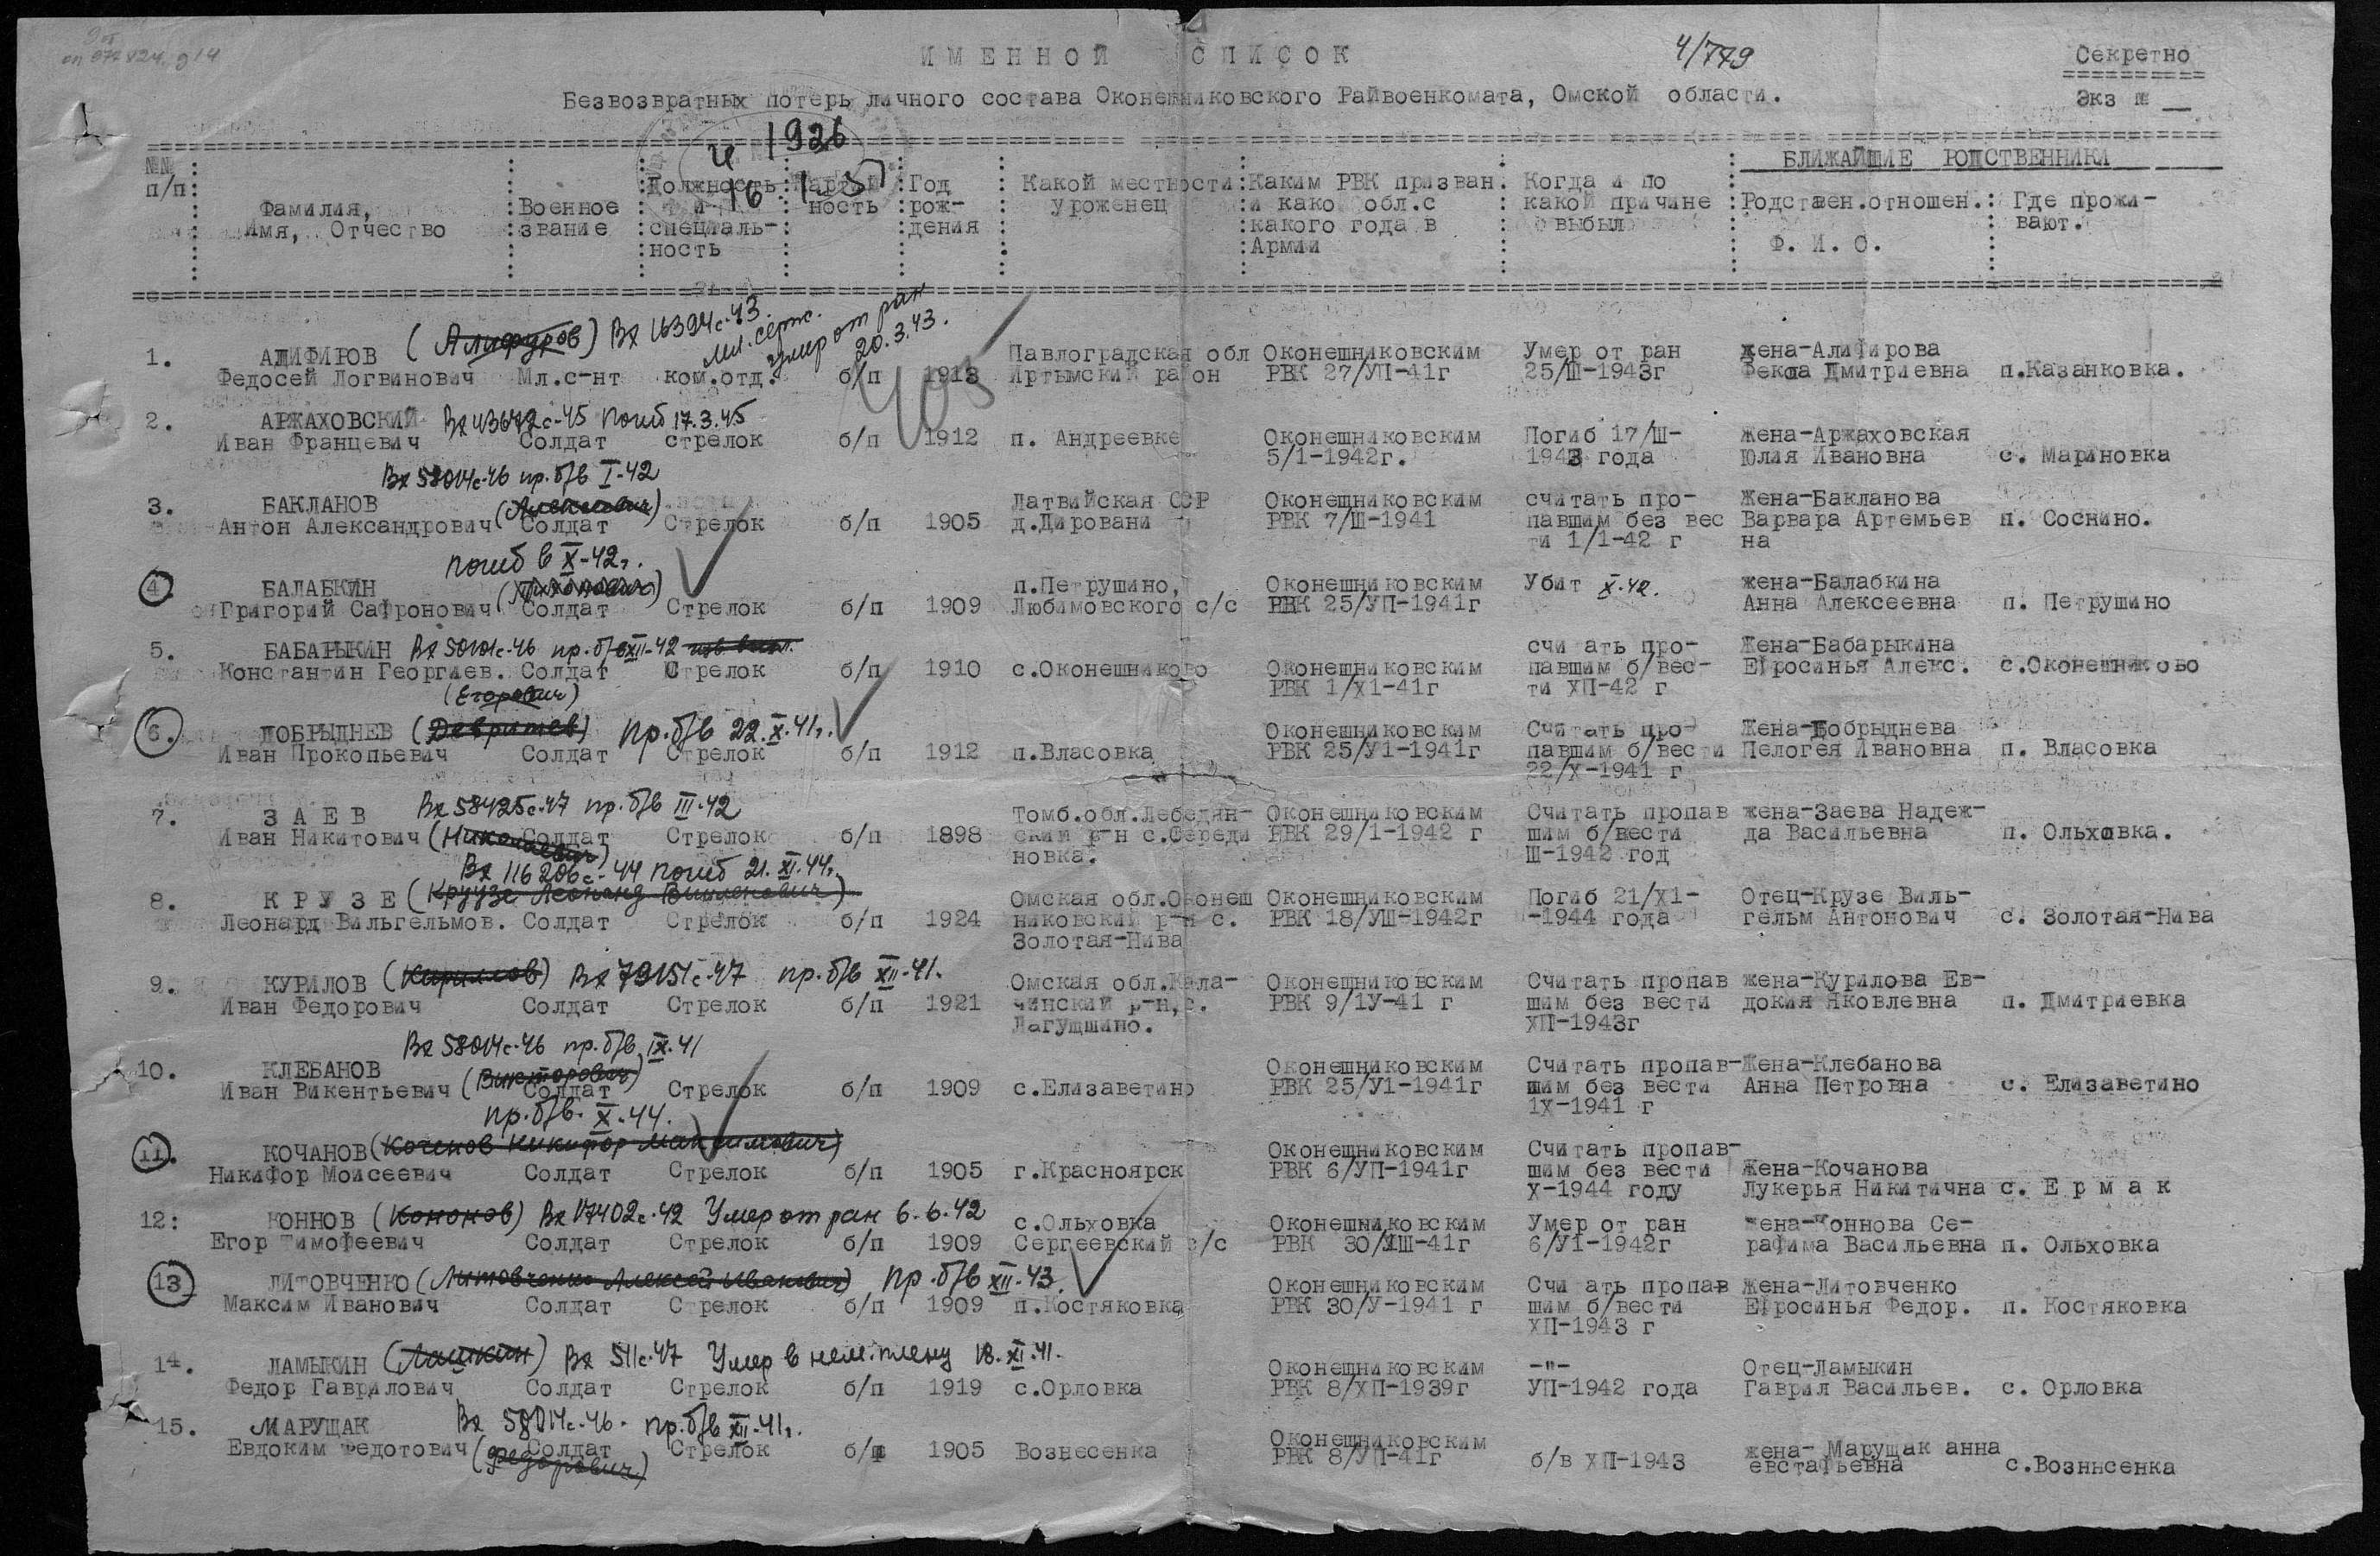 ИМЕННОЙ СПИСОК
4/779
Секретно
Безвозвратных потерь личного состава Оконешниковского Райвоенкомата, Омской области.
Экз №
1926
№№ п/п
Фамилия, Имя, Отчество
Военное звание
Должность и специаль-ность
ность
Год рож-дения
Какой местности уроженец
Каким РВК призван и како обл.с какого года в Армии
Когда и по какой причине выбыл
БЛИЖАЙШИЕ РОДСТВЕННИКИ
Родствен.отношен. Ф. И. О.
Где прожи-вают.
(Алифуров) Вх 16394с-43. мл. серж. умер от ран 20.3.43.
405
1. АЛИФИРОВ Павлоградская обл Оконешниковским Умер от ран жена-Алифирова
Федосей Логвинович Мл.с-нт ком.отд. б/п 1913 Иртымский район РВК 27/УП-41г 25/Ш-1943г Фекла Дмитриевна п.Казанковка.
2. АРЖАХОВСКИЙ Вх 43672с-45 погиб 17.3.45
Иван Францевич Солдат стрелок б/п 1912 п. Андреевке Оконешниковским Погиб 17/Ш- жена-Аржаховская
5/1-1942г. 1943 года Юлия Ивановна с. Мариновка
Вх 58014с-46 пр. б/в I-42
3. БАКЛАНОВ (Алексеевич) Латвийская ССР Оконешниковским считать про- Жена-Бакланова
Антон Александрович Солдат Стрелок б/п 1905 д.Дировани РВК 7/Ш-1941 павшим без вес Варвара Артемьев п. Соснино.
ти 1/1-42 г на
погиб в X-42г.
4 БАЛАБКИН (Тихонович) п.Петрушино, Оконешниковским Убит X.42. жена-Балабкина
Григорий Сафронович Солдат Стрелок б/п 1909 Любимовского с/с РВК 25/УП-1941г Анна Алексеевна п. Петрушино
5. БАБАРЫКИН Вх 50101с-46 пр. б/в XII-42 считать про- Жена-Бабарыкина
Константин Георгиев. Солдат Стрелок б/п 1910 с.Оконешниково Оконешниковским павшим б/вес- Ефросинья Алекс. с.Оконешниково
(Егорович) РВК 1/Х1-41г ти ХП-42 г
6. ДОБРЫДНЕВ пр. б/в 22.X.41г. Оконешниковским Считать про- Жена-Добрыднева
Иван Прокопьевич Солдат Стрелок б/п 1912 п.Власовка РВК 25/У1-1941г павшим б/вести Пелогея Ивановна п. Власовка
22/х-1941 г
Вх 58425с-47 пр. б/в III-42
7. ЗАЕВ Томб.обл.Лебедян- Оконешниковским Считать пропав жена-Заева Надеж-
Иван Никитович (Николаевич) Солдат Стрелок б/п 1898 ским р-н с.Середи РВК 29/1-1942 г шим б/вести да Васильевна п. Ольховка.
новка. Ш-1942 год
Вх 116206с-44 погиб 21.XI.44г.
8. КРУЗЕ Омская обл.Оконеш Оконешниковским Погиб 21/Х1- Отец-Крузе Виль-
Леонард Вильгельмов. Солдат Стрелок б/п 1924 никовский р-н с. РВК 18/УШ-1942г -1944 года гельм Антонович с. Золотая-Нива
Золотая-Нива
9. КУРИЛОВ (Кириллов) Вх 79151с-47 пр. б/в XII-41. Омская обл.Кала- Оконешниковским Считать пропав жена-Курилова Ев-
Иван Федорович Солдат Стрелок б/п 1921 чинский р-н,с. РВК 9/1У-41 г шим без вести докия Яковлевна п. Дмитриевка
Лагущшино. ХП-1943г
Вх 58014с-46 пр. б/в IX.41
10. КЛЕБАНОВ (Викторович) Оконешниковским Считать пропав- Жена-Клебанова
Иван Викентьевич Солдат Стрелок б/п 1909 с.Елизаветино РВК 25/У1-1941г шим без вести Анна Петровна с. Елизаветино
1х-1941 г
пр. б/в. X.44.
11. КОЧАНОВ (Коченов Никифор Максимович) Оконешниковским Считать пропав-
Никифор Моисеевич Солдат Стрелок б/п 1905 г.Красноярск РВК 6/УП-1941г шим без вести Жена-Кочанова
х-1944 году Лукерья Никитична с. Ермак
12: КОННОВ (Кононов) Вх 17402с-42 Умер от ран 6.6.42 с.Ольховка Оконешниковским Умер от ран жена-Коннова Се-
Егор Тимофеевич Солдат Стрелок б/п 1909 Сергеевский с/с РВК 30/УШ-41г 6/У1-1942г рафима Васильевна п. Ольховка
13 ЛИТОВЧЕНКО (Литовченко Алексей Иванович) пр. б/в XII.43. Оконешниковским Счи ать пропав жена-Литовченко
Максим Иванович Солдат Стрелок б/п 1909 п.Костяковка РВК 30/У-1941 г шим б/вести Ефросинья Федор. п. Костяковка
ХП-1943 г
14. ЛАМЫКИН Вх 511с-47 Умер в нем. плену 18.XI.41. Оконешниковским -"- Отец-Ламыкин
Федор Гаврилович Солдат Стрелок б/п 1919 с.Орловка РВК 8/ХП-1939г УП-1942 года Гаврил Васильев. с. Орловка
15. МАРУЩАК Вх 58014с-46. пр. б/в XII.41г.
Евдоким Федотович (Федорович) Солдат Стрелок б/п 1905 Вознесенка Оконешниковским РВК 8/УП-41г б/в ХП-1943 жена- Марущак анна евстафьевна с.Возньсенка